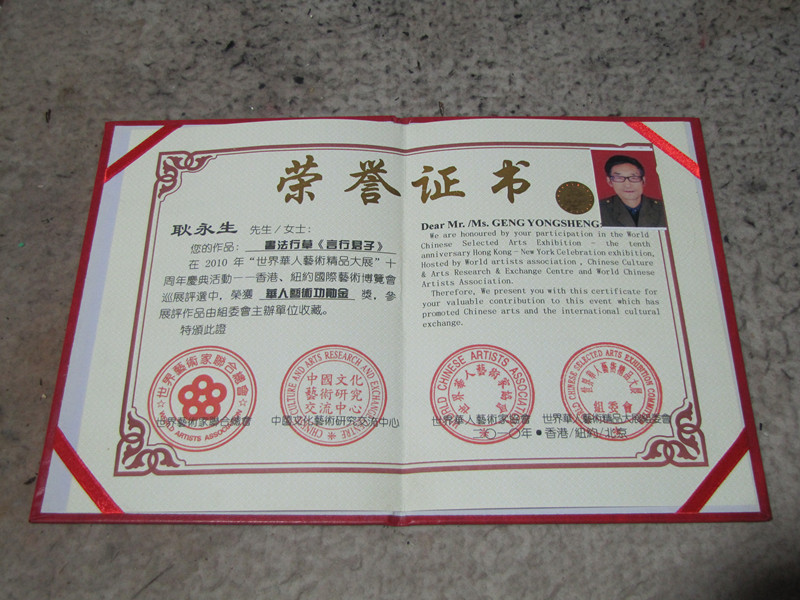 荣誉证书
耿永生 先生/女士：
您的作品： 書法行草《言行君子》
在2010年“世界華人藝術精品大展”十
周年慶典活動－－香港、紐約國際藝術博覽會
巡展評選中，榮獲 華人藝術功勛金 獎，參
展評作品由組委會主辦單位收藏。
特頒此證
Dear Mr. /Ms. GENG YONGSHENG
We are honoured by your participation in the World
Chinese Selected Arts Exhibition - the tenth
anniversary Hong Kong - New York Celebration exhibition,
Hosted by World artists association , Chinese Culture
& Arts Research & Exchange Centre and World Chinese
Artists Association.
Therefore, We present you with this certificate for
your valuable contribution to this event which has
promoted Chinese arts and the international cultural
exchange.
世界藝術家聯合總會
WORLD ARTISTS ASSOCIATION
世界藝術家聯合總會
CULTURE AND ARTS RESEARCH AND EXCHANGE CENTRE
中國文化
藝術研究
交流中心
中國文化藝術研究交流中心
WORLD CHINESE ARTISTS ASSOCIATION
世界華人藝術家協會
世界華人藝術家協會
CHINESE SELECTED ARTS EXHIBITION COMMITTEE
世界華人藝術精品大展
組委會
世界華人藝術精品大展組委會
二〇一〇年●香港/紐約/北京